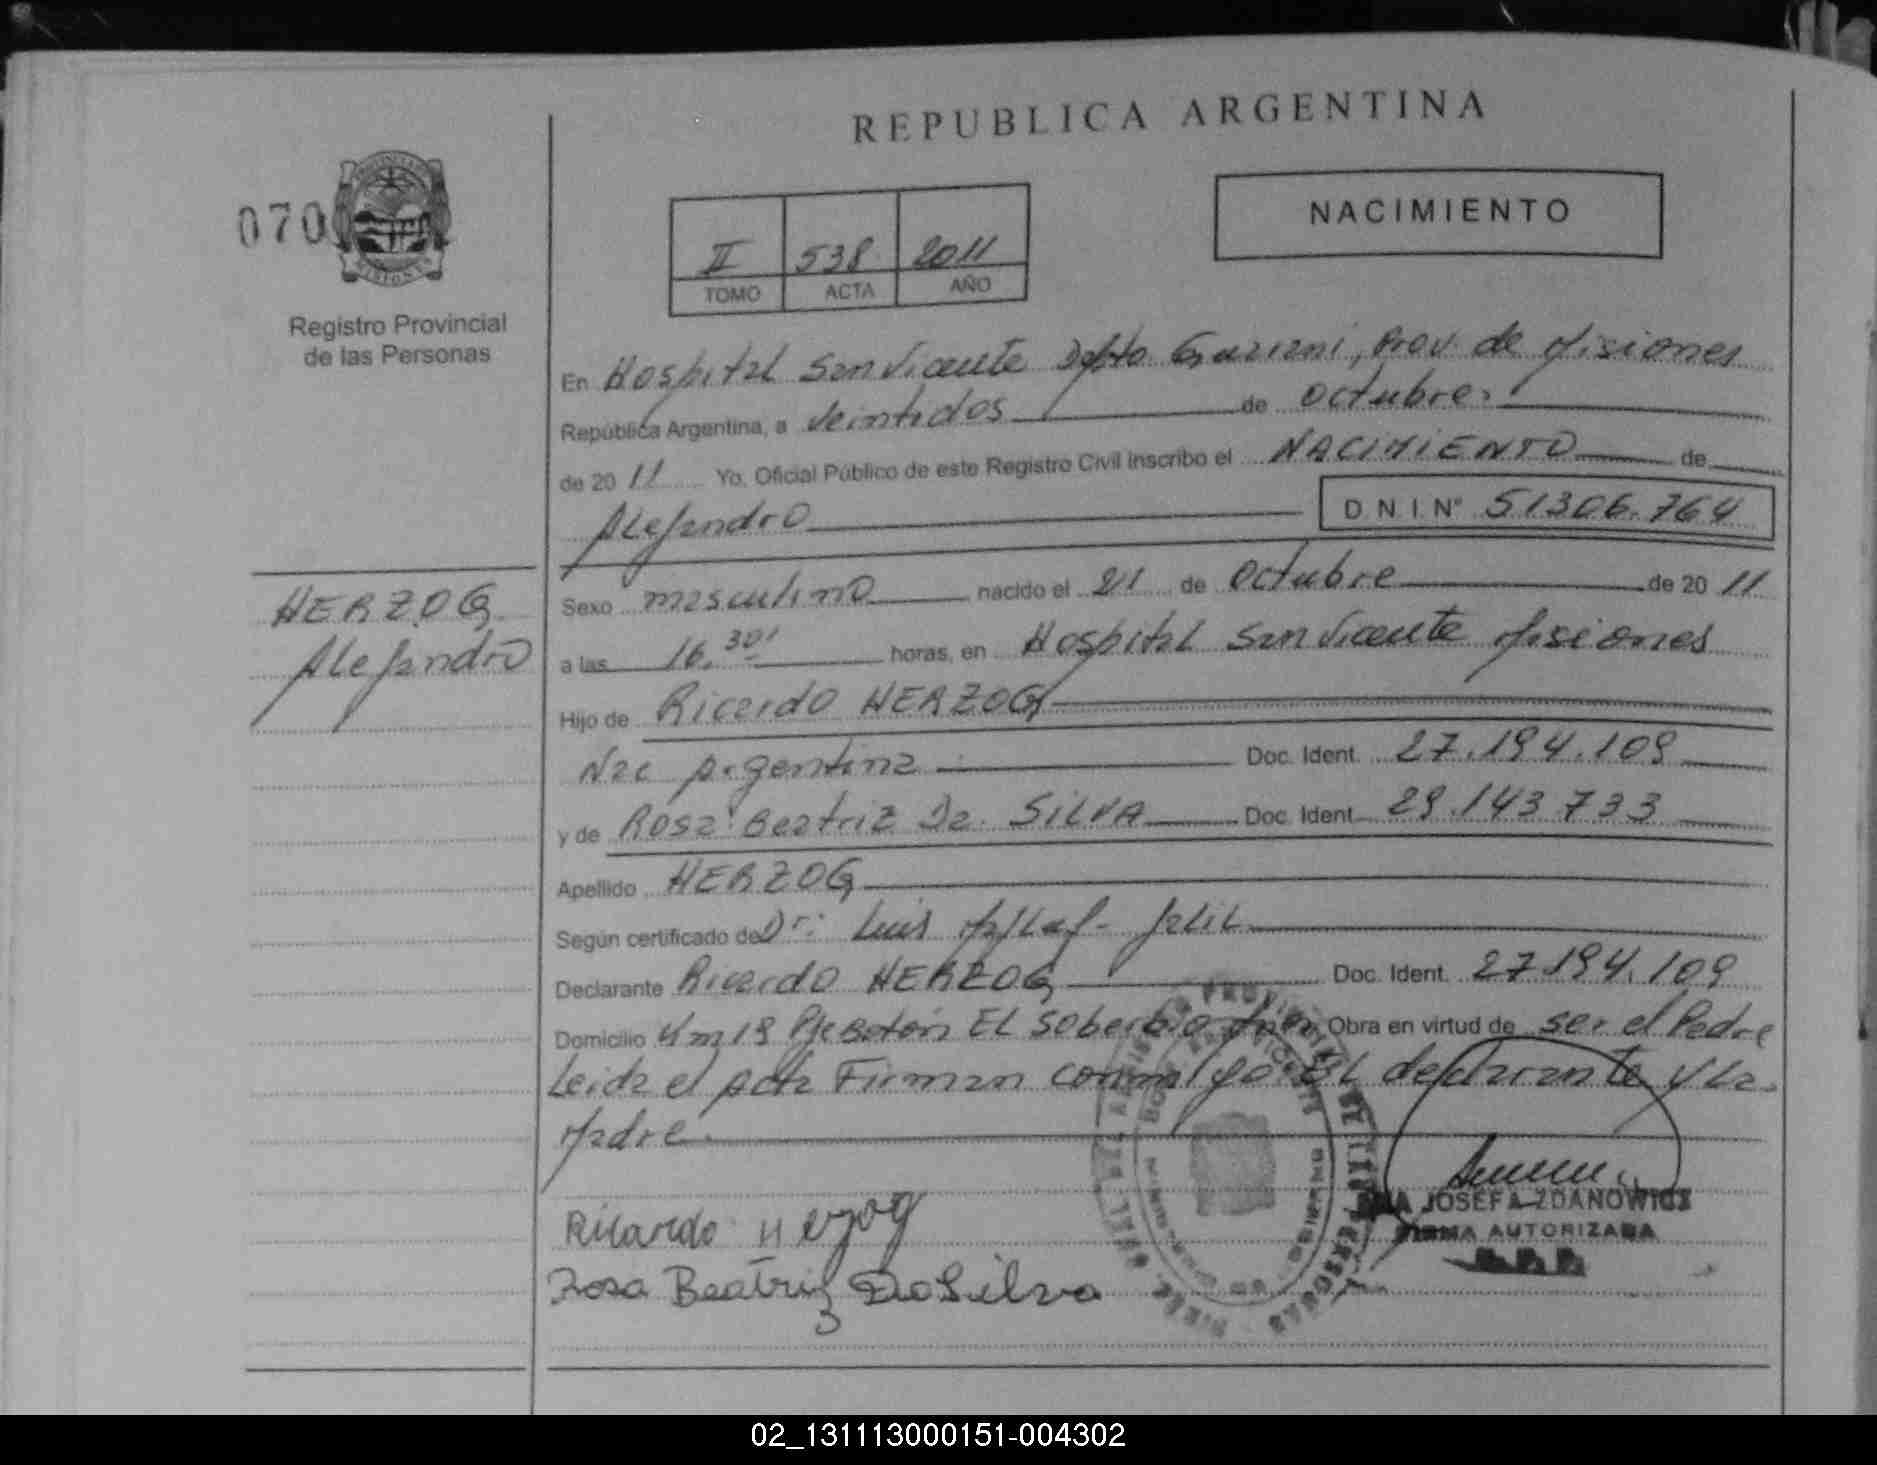 REPUBLICA ARGENTINA
070
NACIMIENTO
II 538 2011
TOMO ACTA AÑO
Registro Provincial
de las Personas
En Hospital San Vicente Dpto Guarani, Prov. de Misiones
República Argentina, a Veintidos de Octubre
de 20 11 Yo, Oficial Público de este Registro Civil inscribo el NACIMIENTO de
Alejandro D.N.I. Nº 51306.764
HERZOG
Alejandro
Sexo masculino nacido el 21 de Octubre de 20 11
a las 16.30' horas, en Hospital San Vicente Misiones
Hijo de Ricardo HERZOG
Nac Argentina Doc. Ident. 27.194.109
y de Rosa Beatriz Da SILVA Doc. Ident. 29.143.733
Apellido HERZOG
Según certificado de Dr: Luis
Declarante Ricardo HERZOG Doc. Ident. 27.194.109
Domicilio Km 19 El Soberbio Obra en virtud de ser el Padre
Leida el Acta Firman conmigo EL declarante y La
Madre
Ricardo Herzog
Rosa Beatriz Da Silva
JOSEFA ZDANOWICZ
FIRMA AUTORIZADA
02_131113000151-004302